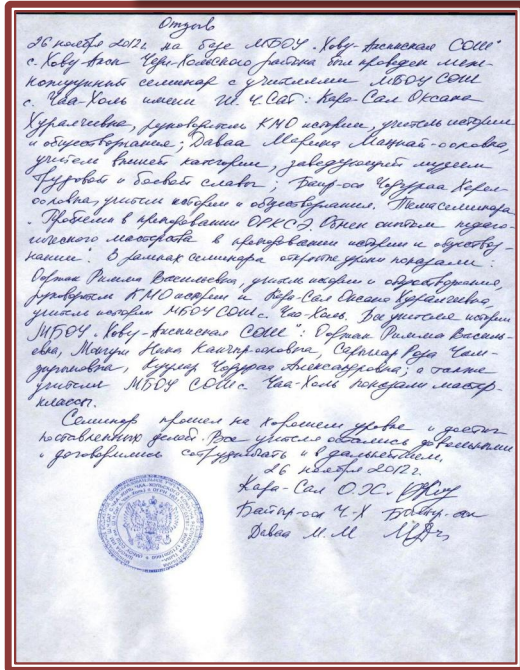 Отзыв
26 ноября 2012г. на базе МБОУ „Хову-Аксынская СОШ"
с. Хову-Аксы Чеди-Хольского района был проведен меж-
кожуунный семинар с учителями МБОУ СОШ
с. Чаа-Холь имени Ш. Ч. Сат: Кара-Сал Оксана
Хуралчиевна, руководитель КМО истории, учитель истории
и обществознания; Даваа Марина Маннай-ооловна,
учитель высшей категории, заведующий музеем
Трудовой и боевой славы; Чодураа
ооловна, учитель истории и обществознания. Тема семинара
„Проблемы в преподавании ОРКСЭ. Обмен опытом педаго-
гического мастерства в преподавании истории и обществоз-
нании". В рамках семинара открытые уроки показали:
Римма Васильевна, учитель истории и обществознания,
руководитель КМО истории и Кара-Сал Оксана Хуралчиевна,
учитель истории МБОУ СОШ с. Чаа-Холь. Все учителя истории
МБОУ „Хову-Аксынская СОШ": Римма Василь-
евна, Монгуш Ника, Роза Чам-
Куулар Чодураа Александровна; а также
учителя МБОУ СОШ с. Чаа-Холь показали мастер-
классы.
Семинар прошел на хорошем уровне и достиг
поставленных целей. Все учителя остались довольными
и договорились сотрудничать и в дальнейшем.
26 ноября 2012г.
Кара-Сал О.Х.
Батыр-оол Ч.Х
Даваа М.М